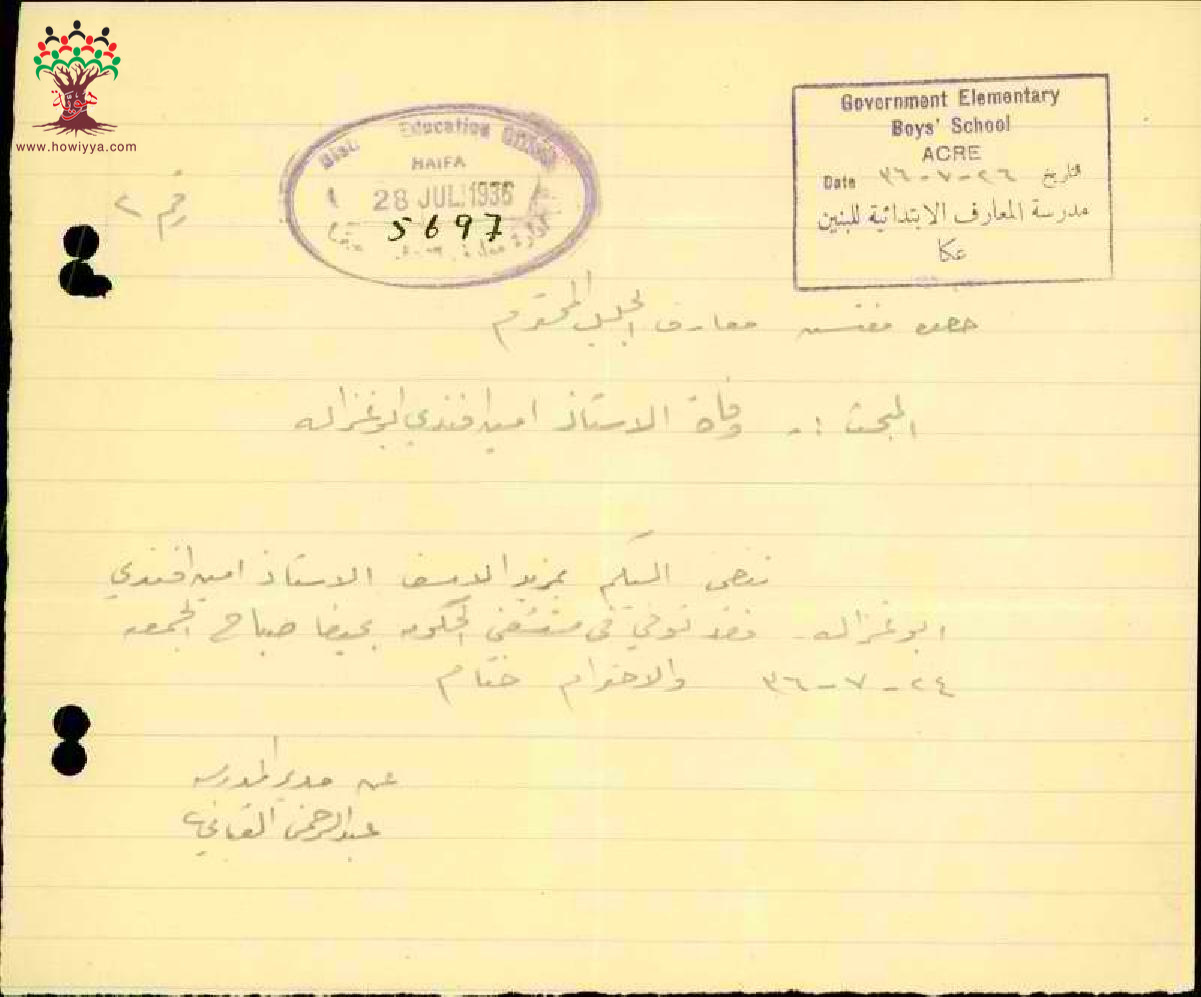 هوية
www.howiyya.com
Government Elementary
Boys' School
ACRE
Date ٢٦-٧-٣٦ تاريخ
مدرسة المعارف الابتدائية للبنين
عكا
Education
HAIFA
28 JUL 1936
5697
رقم ٢
حضرة مفتش معارف الجليل المحترم
المبحث :- وفاة الاستاذ امين افندي ابو غزاله
ننعى اليكم بمزيد الاسف الاستاذ امين افندي
ابو غزاله - فقد توفي في مستشفى الحكومه بحيفا صباح الجمعه
٢٤-٧-٣٦ والاحترام ختام
عن مدير المدرسه
عبد الرحمن